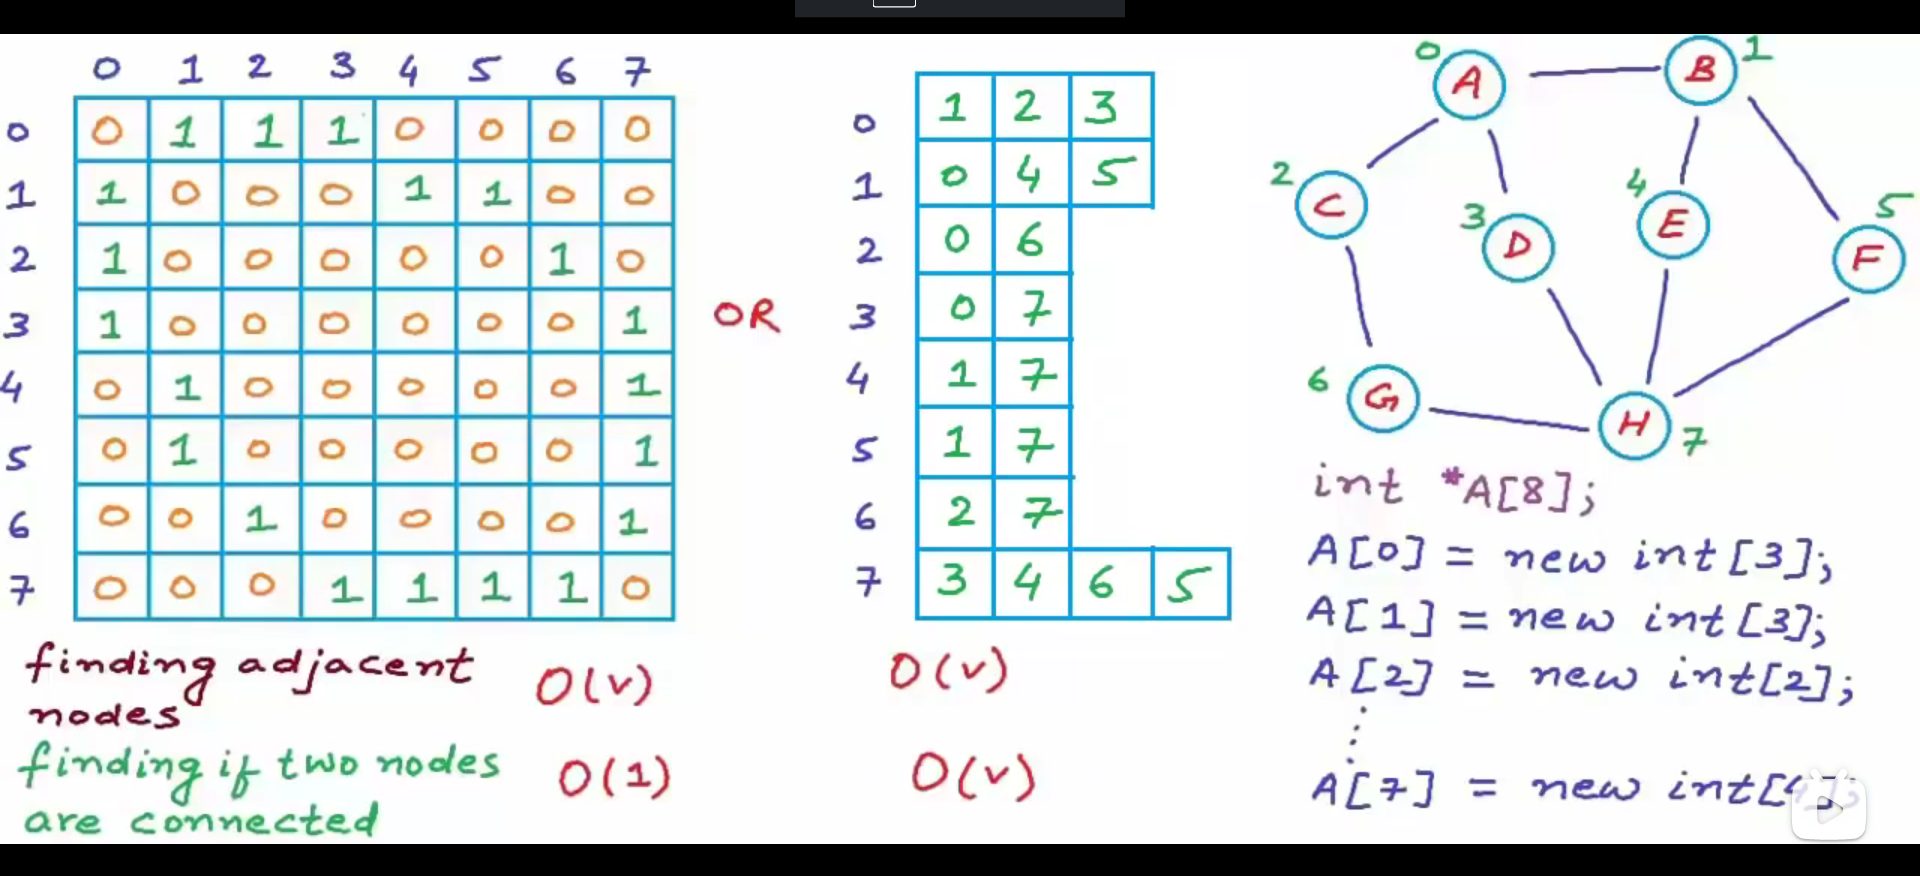 0 1 2 3 4 5 6 7
0 0 1 1 1 0 0 0 0
1 1 0 0 0 1 1 0 0
2 1 0 0 0 0 0 1 0
3 1 0 0 0 0 0 0 1
4 0 1 0 0 0 0 0 1
5 0 1 0 0 0 0 0 1
6 0 0 1 0 0 0 0 1
7 0 0 0 1 1 1 1 0
OR
0 1 2 3
1 0 4 5
2 0 6
3 0 7
4 1 7
5 1 7
6 2 7
7 3 4 6 5
0 A B 1
2 C 3 D 4 E 5 F
6 G H 7
finding adjacent
nodes
O(v) O(v)
finding if two nodes
are connected
O(1) O(v)
int *A[8];
A[0] = new int[3];
A[1] = new int[3];
A[2] = new int[2];
⋮
A[7] = new int[4];